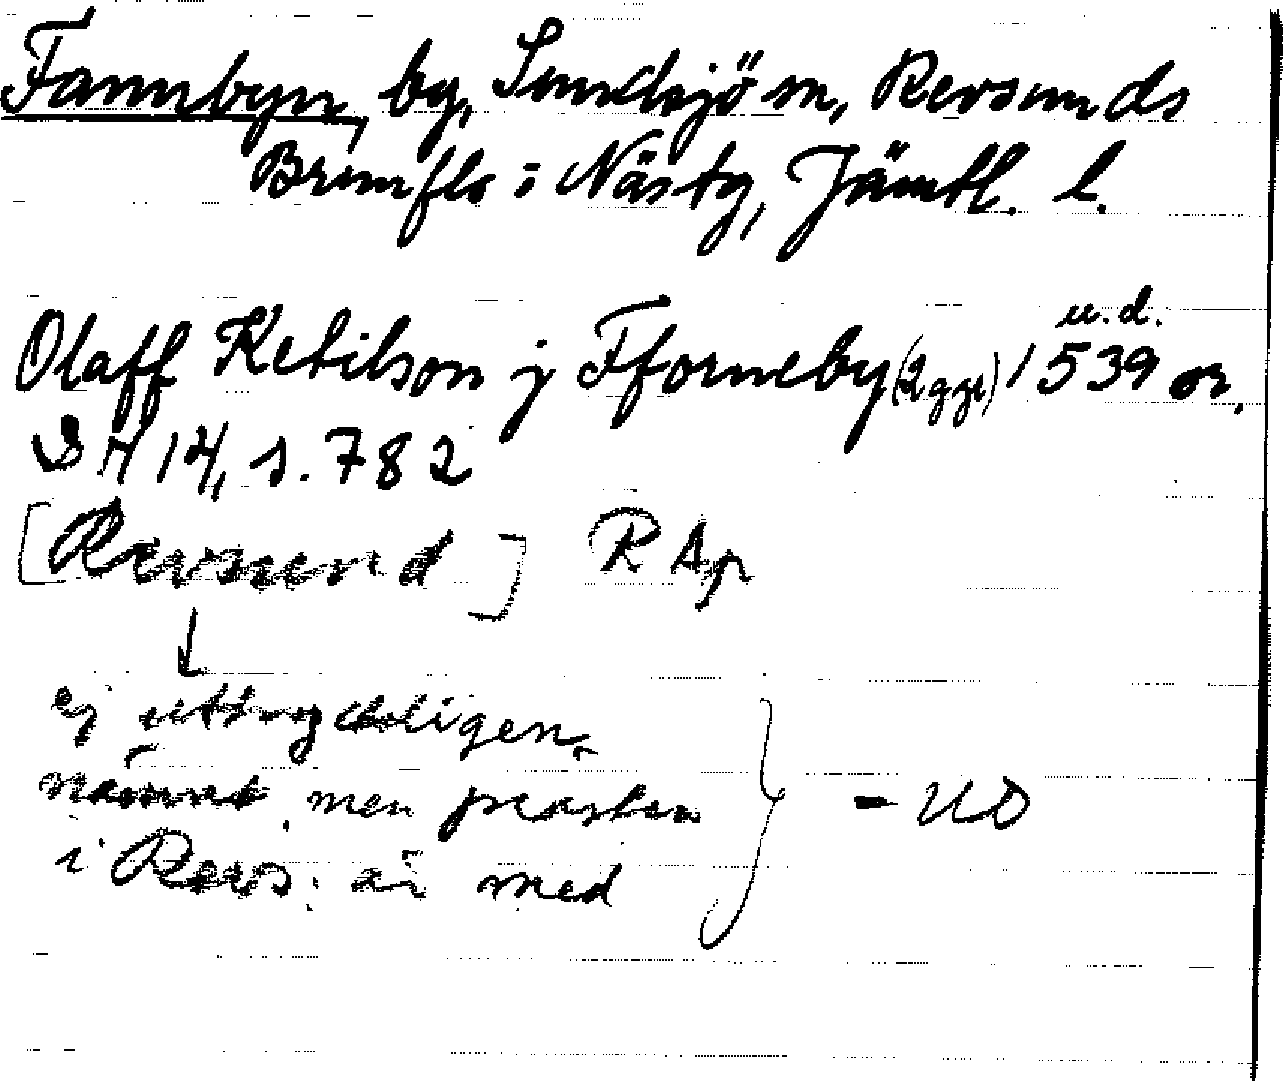 Fannbyn, by, Sundsjö sn, Revsunds
Brunflo o Näs tg, Jämtl. l.
u.d.
Olaff Ketilson j Fforneby (2 ggr) 1539 or.
DN 14, s. 782
[Revsund] RAp
↓
ej uttryckligen
nämnt, men prästen
i Revs. är med } - UD